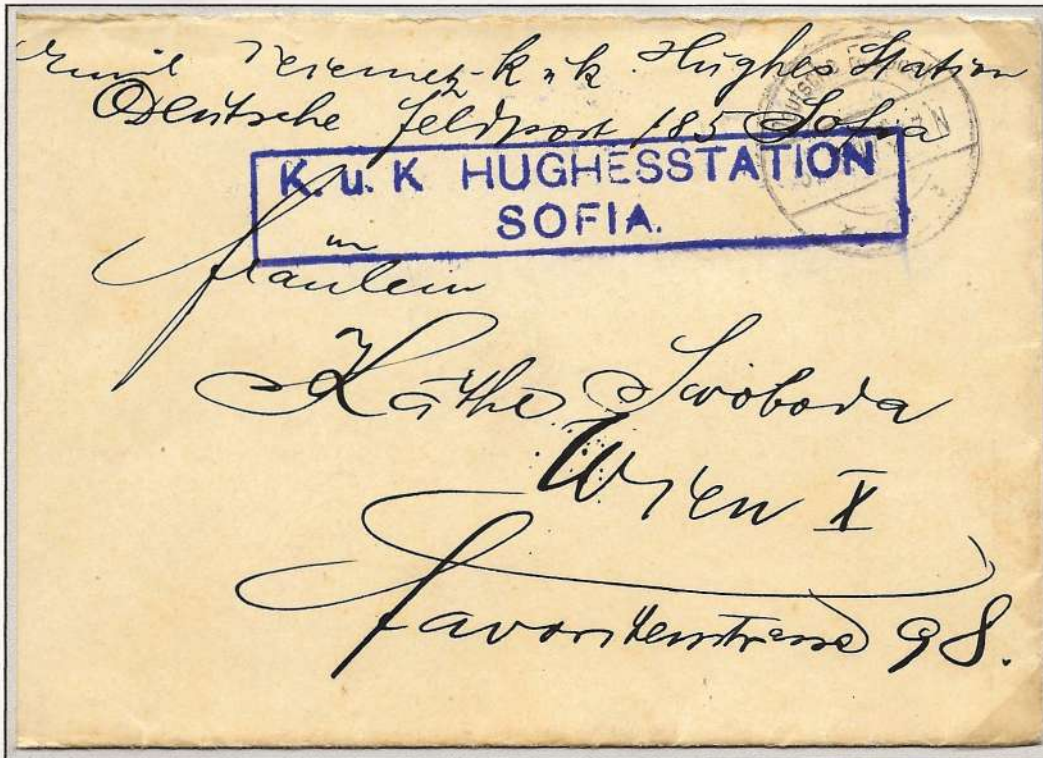 Emil k u k. Hughes Station
Deutsche Feldpost 185 Sofia
K. u. K HUGHESSTATION
SOFIA.
Fräulein
Käthe Swoboda
Wien X
Favoritenstrasse 98.